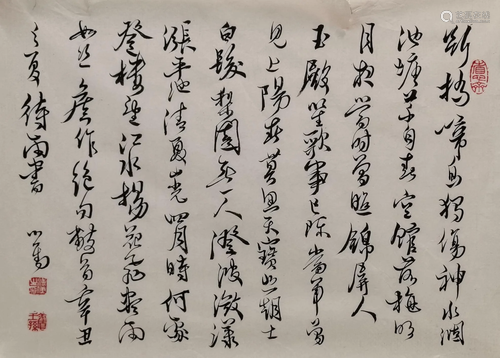 斷橋啼鳥獨傷神水涸
池塘草自春空館落梅明
月夜當時曾照錦屏人
玉殿笙歌事已陳
見上陽春莫思天寶朝士
白髮梨園無一人澄波潋漾
漲平池清夏山光四月時何處
登樓望江水楊花飛盡雨
如絲舊作絕句數首辛丑
之夏待雨書
心畬